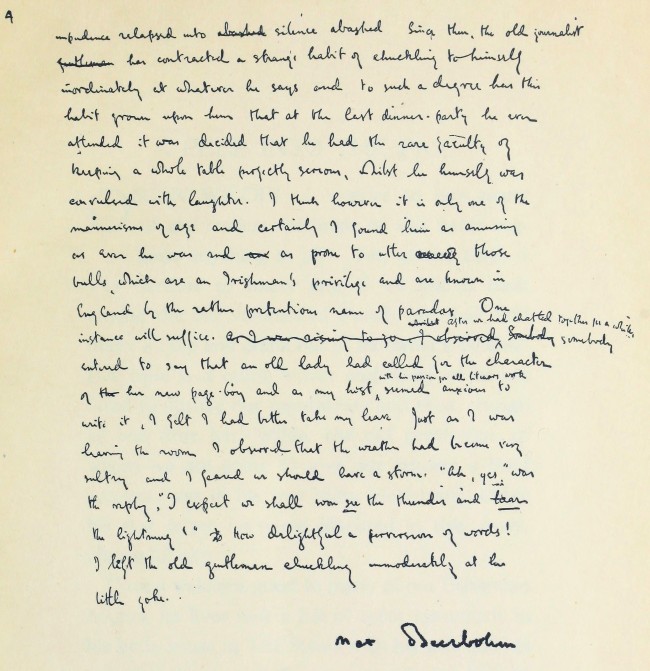 4
impudence relapsed into abashed silence abashed Since then, the old journalist
gentleman has contracted a strange habit of chuckling to himself
inordinately at whatever he says and to such a degree has this
habit grown upon him that at the last dinner-party he ever
attended it was decided that he had the rare faculty of
keeping a whole table perfectly serious, whilst he himself was
convulsed with laughter. I think however it is only one of the
mannerisms of age and certainly I found him as amusing
as ever he was and as prone to utter those
bulls, which are an Irishman's privilege and are known in
England by the rather pretentious name of paradox One
whilst after we had chatted together for a while,
instance will suffice. As I was rising to go, I observed, Somebody somebody
entered to say that an old lady had called for the character
of the her new page-boy and as my host, seemed anxious to
with his passion for all literary work
write it, I felt I had better take my leave Just as I was
leaving the room I observed that the weather had become very
sultry and I feared we should have a storm. "Ah, yes," was
the reply, "I expect we shall soon see the thunder and hear
the lightning!" How delightful a perversion of words!
I left the old gentleman chuckling immoderately at his
little joke.
Max Beerbohm